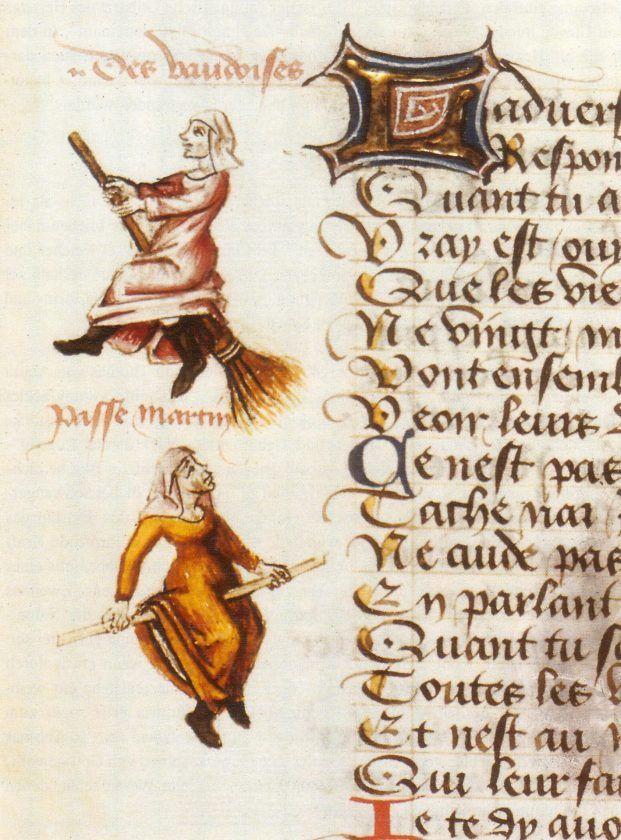 Des vaudoises
passe martin
Ladvers
Respon
Quant tu a
Vray est / ouy
Que les vie
Ne vingt / m
Vont ensembl
Veoir leurs
Ce nest pas
Tache nai
Ne cuide pas
En parlant
Quant tu sc
Toutes les v
Et nest au
Qui leur fa
Je te dy auo